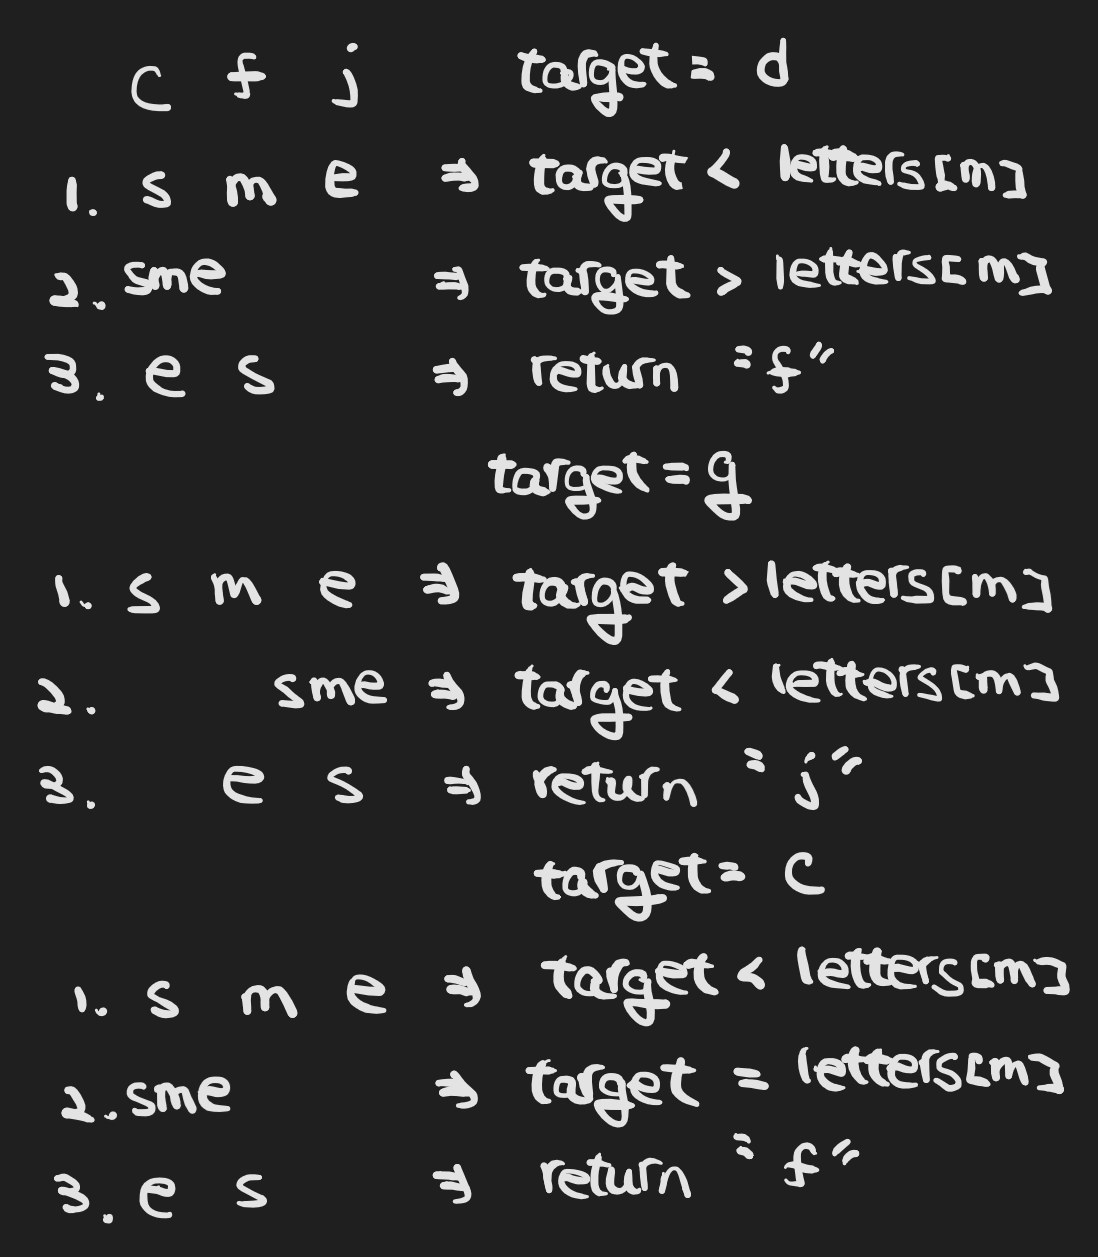 c f j target = d
1. s m e ⇒ target < letters[m]
2. sme ⇒ target > letters[m]
3. e s ⇒ return "f"
target = g
1. s m e ⇒ target > letters[m]
2. sme ⇒ target < letters[m]
3. e s ⇒ return "j"
target = c
1. s m e ⇒ target < letters[m]
2. sme ⇒ target = letters[m]
3. e s ⇒ return "f"